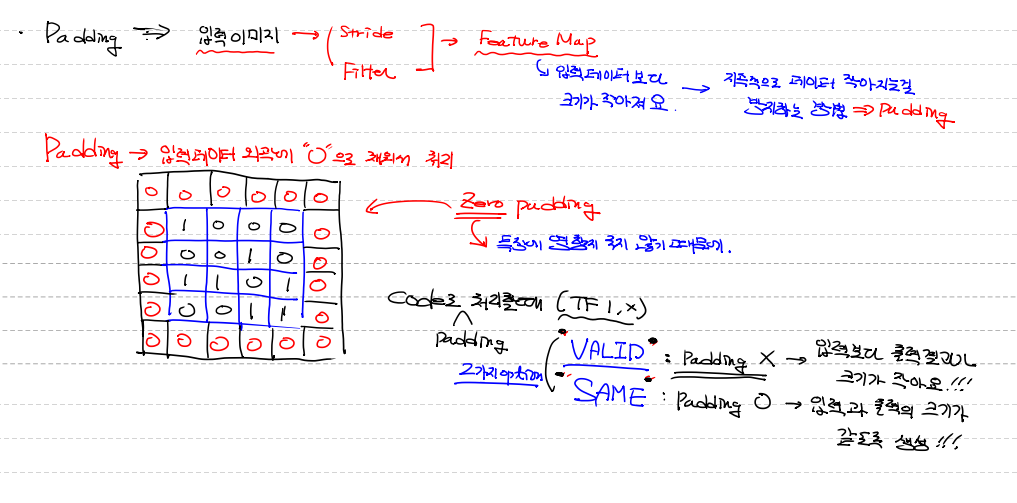 · Padding ⇒ 입력이미지 → ( Stride Filter ] → Feature Map
↳ 입력데이터보다 크기가 작아져요. → 지속적으로 데이터 작아지는걸 방지하는 방법 ⇒ Padding
Padding → 입력데이터 외곽에 "0"으로 채워서 처리
0 0 0 0 0 0
0 1 0 0 0 0
0 0 0 1 0 0
0 1 1 0 1 0
0 0 0 1 1 0
0 0 0 0 0 0
← Zero padding
↳ 특징에 영향을 주지 않기 때문에.
Code로 처리할때 (TF 1.x)
padding
2가지 option
"VALID" : Padding X → 입력보다 출력결과가
크기가 작아요!!!
"SAME" : Padding O → 입력과 출력의 크기가
같도록 생성!!!